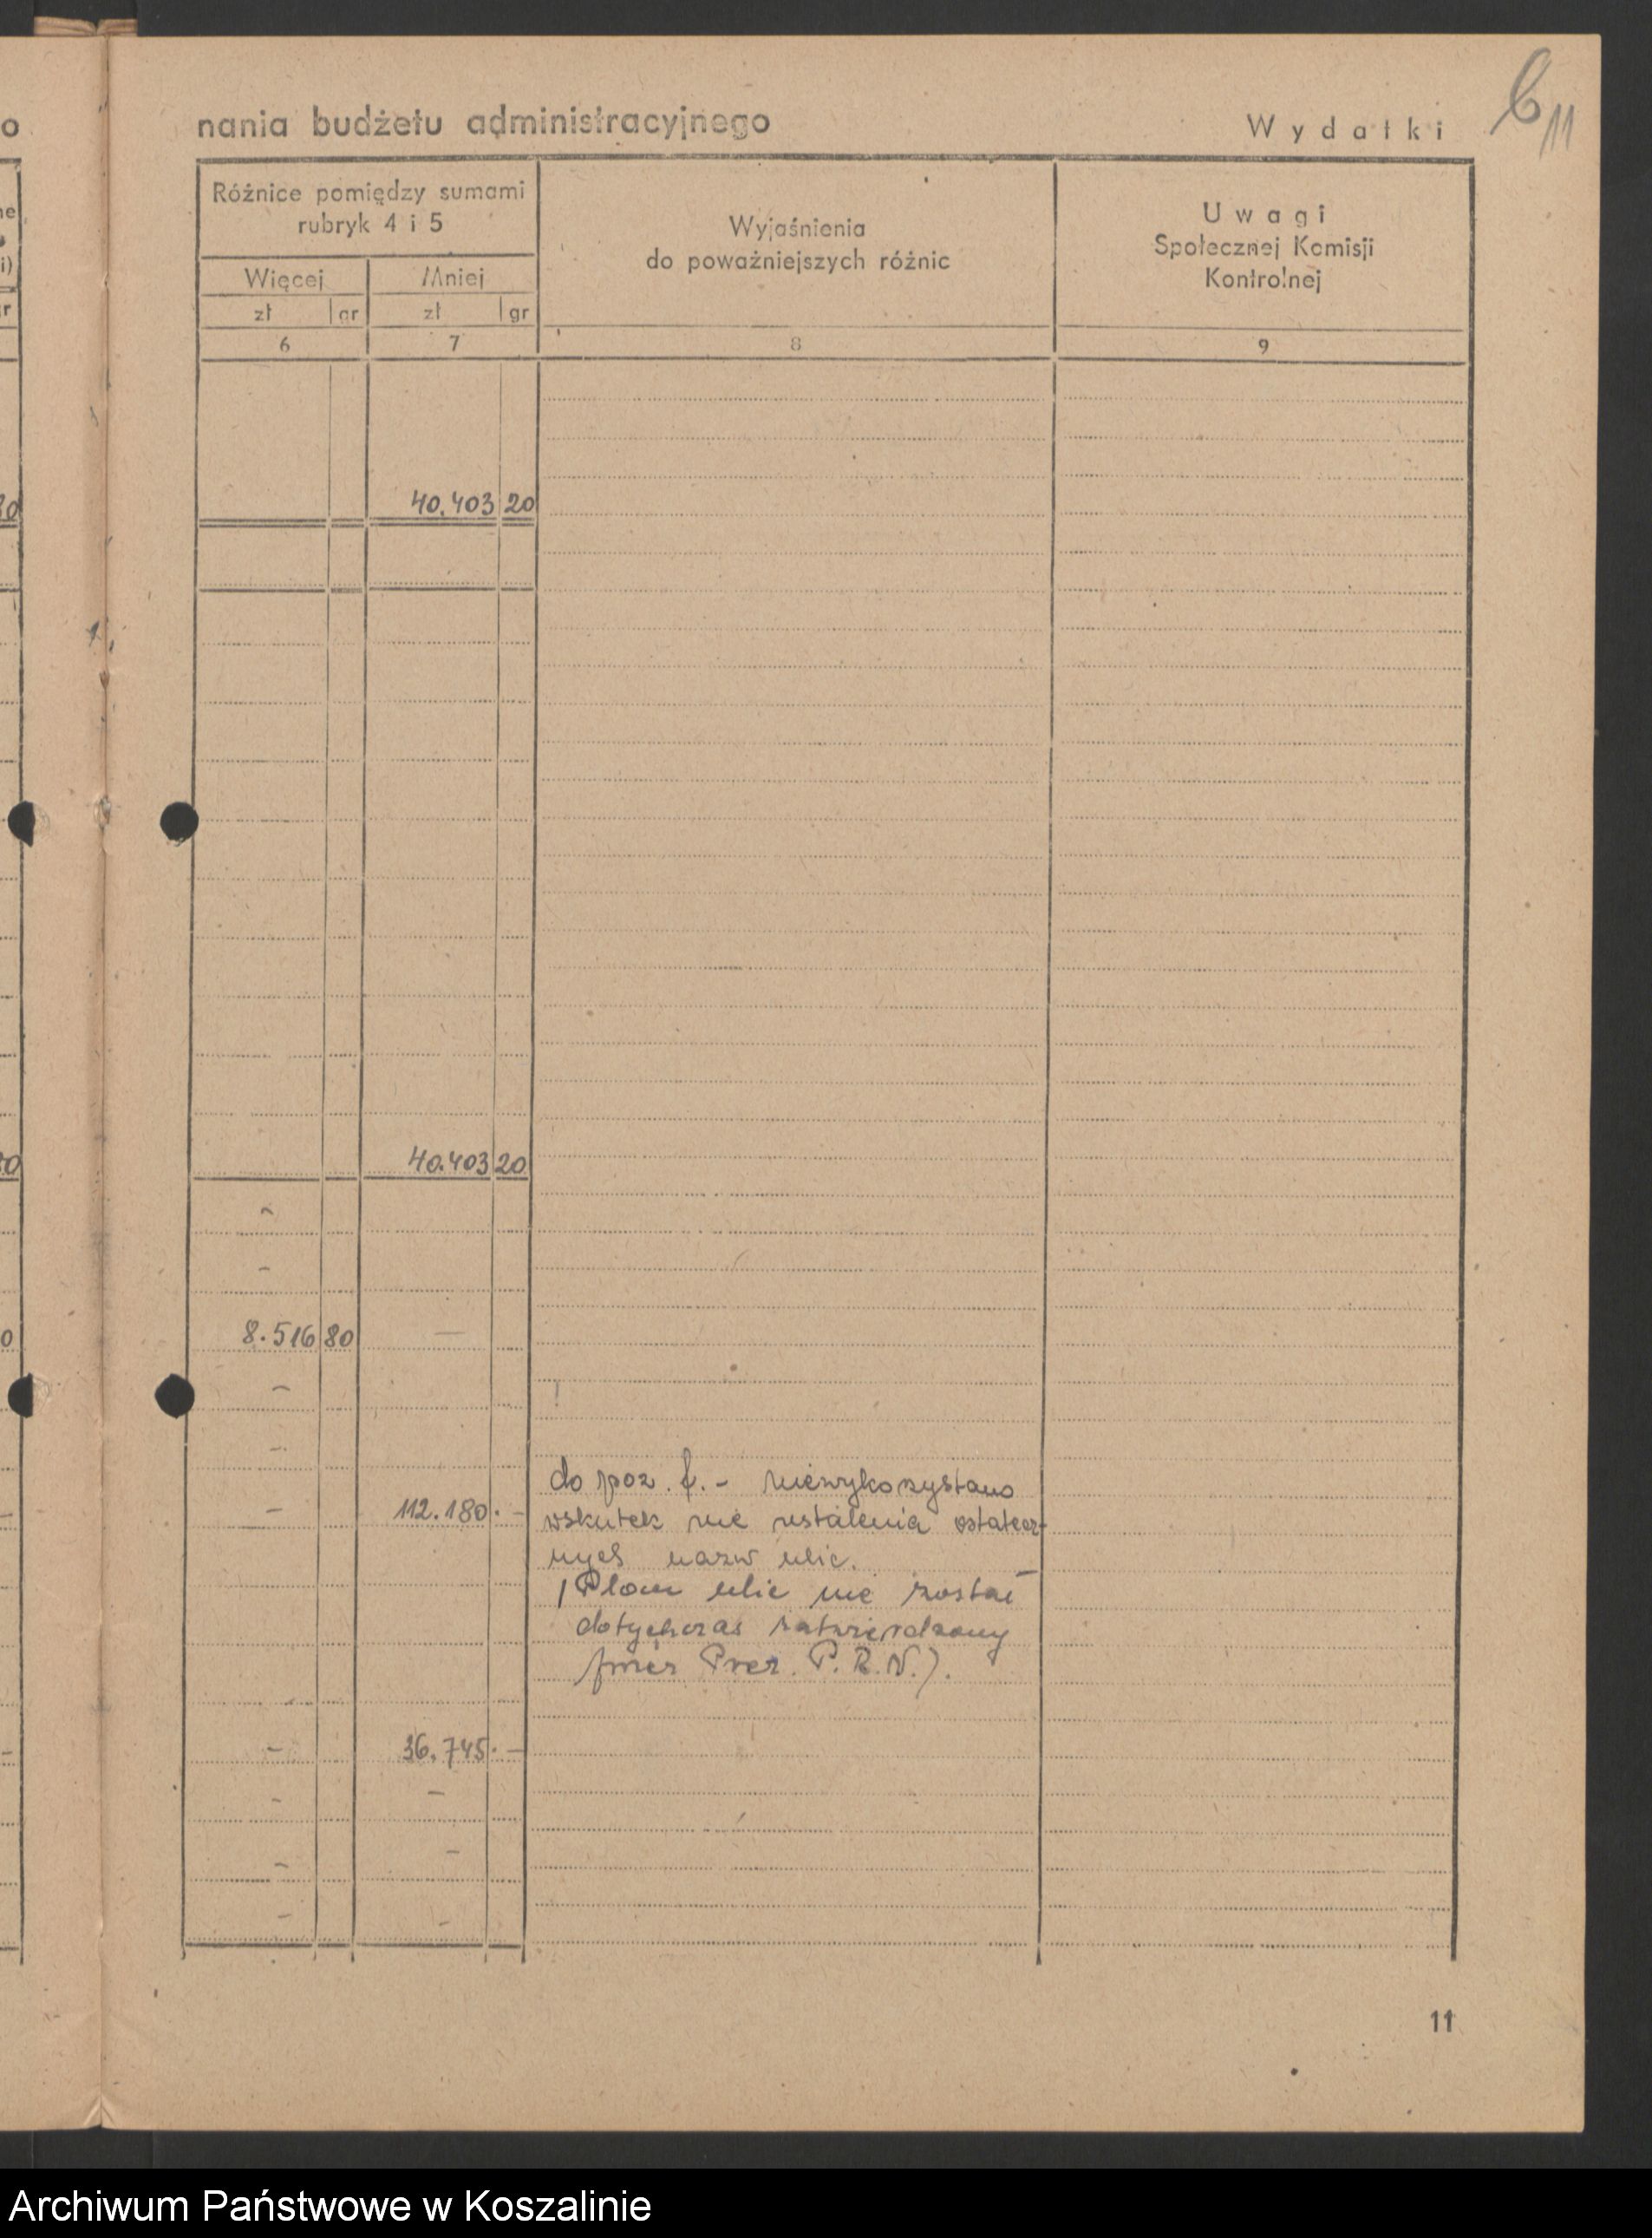 o
nania budżetu administracyjnego
Wydatki
6
11
Różnice pomiędzy sumami
rubryk 4 i 5
Więcej
Mniej
zł
gr
zł
gr
Wyjaśnienia
do poważniejszych różnic
Uwagi
Społecznej Komisji
Kontrolnej
ne
i)
r
6
7
8
9
40.403 20
40.403 20
8.516 80 —
0
do poz. f. - niewykorzystano
112.180. -
wskutek nie ustalenia ostatecz-
nych nazw ulic.
(Plan ulic nie został
dotychczas zatwierdzony
przez Prez. P.R.N.).
36.745. —
11
Archiwum Państwowe w Koszalinie